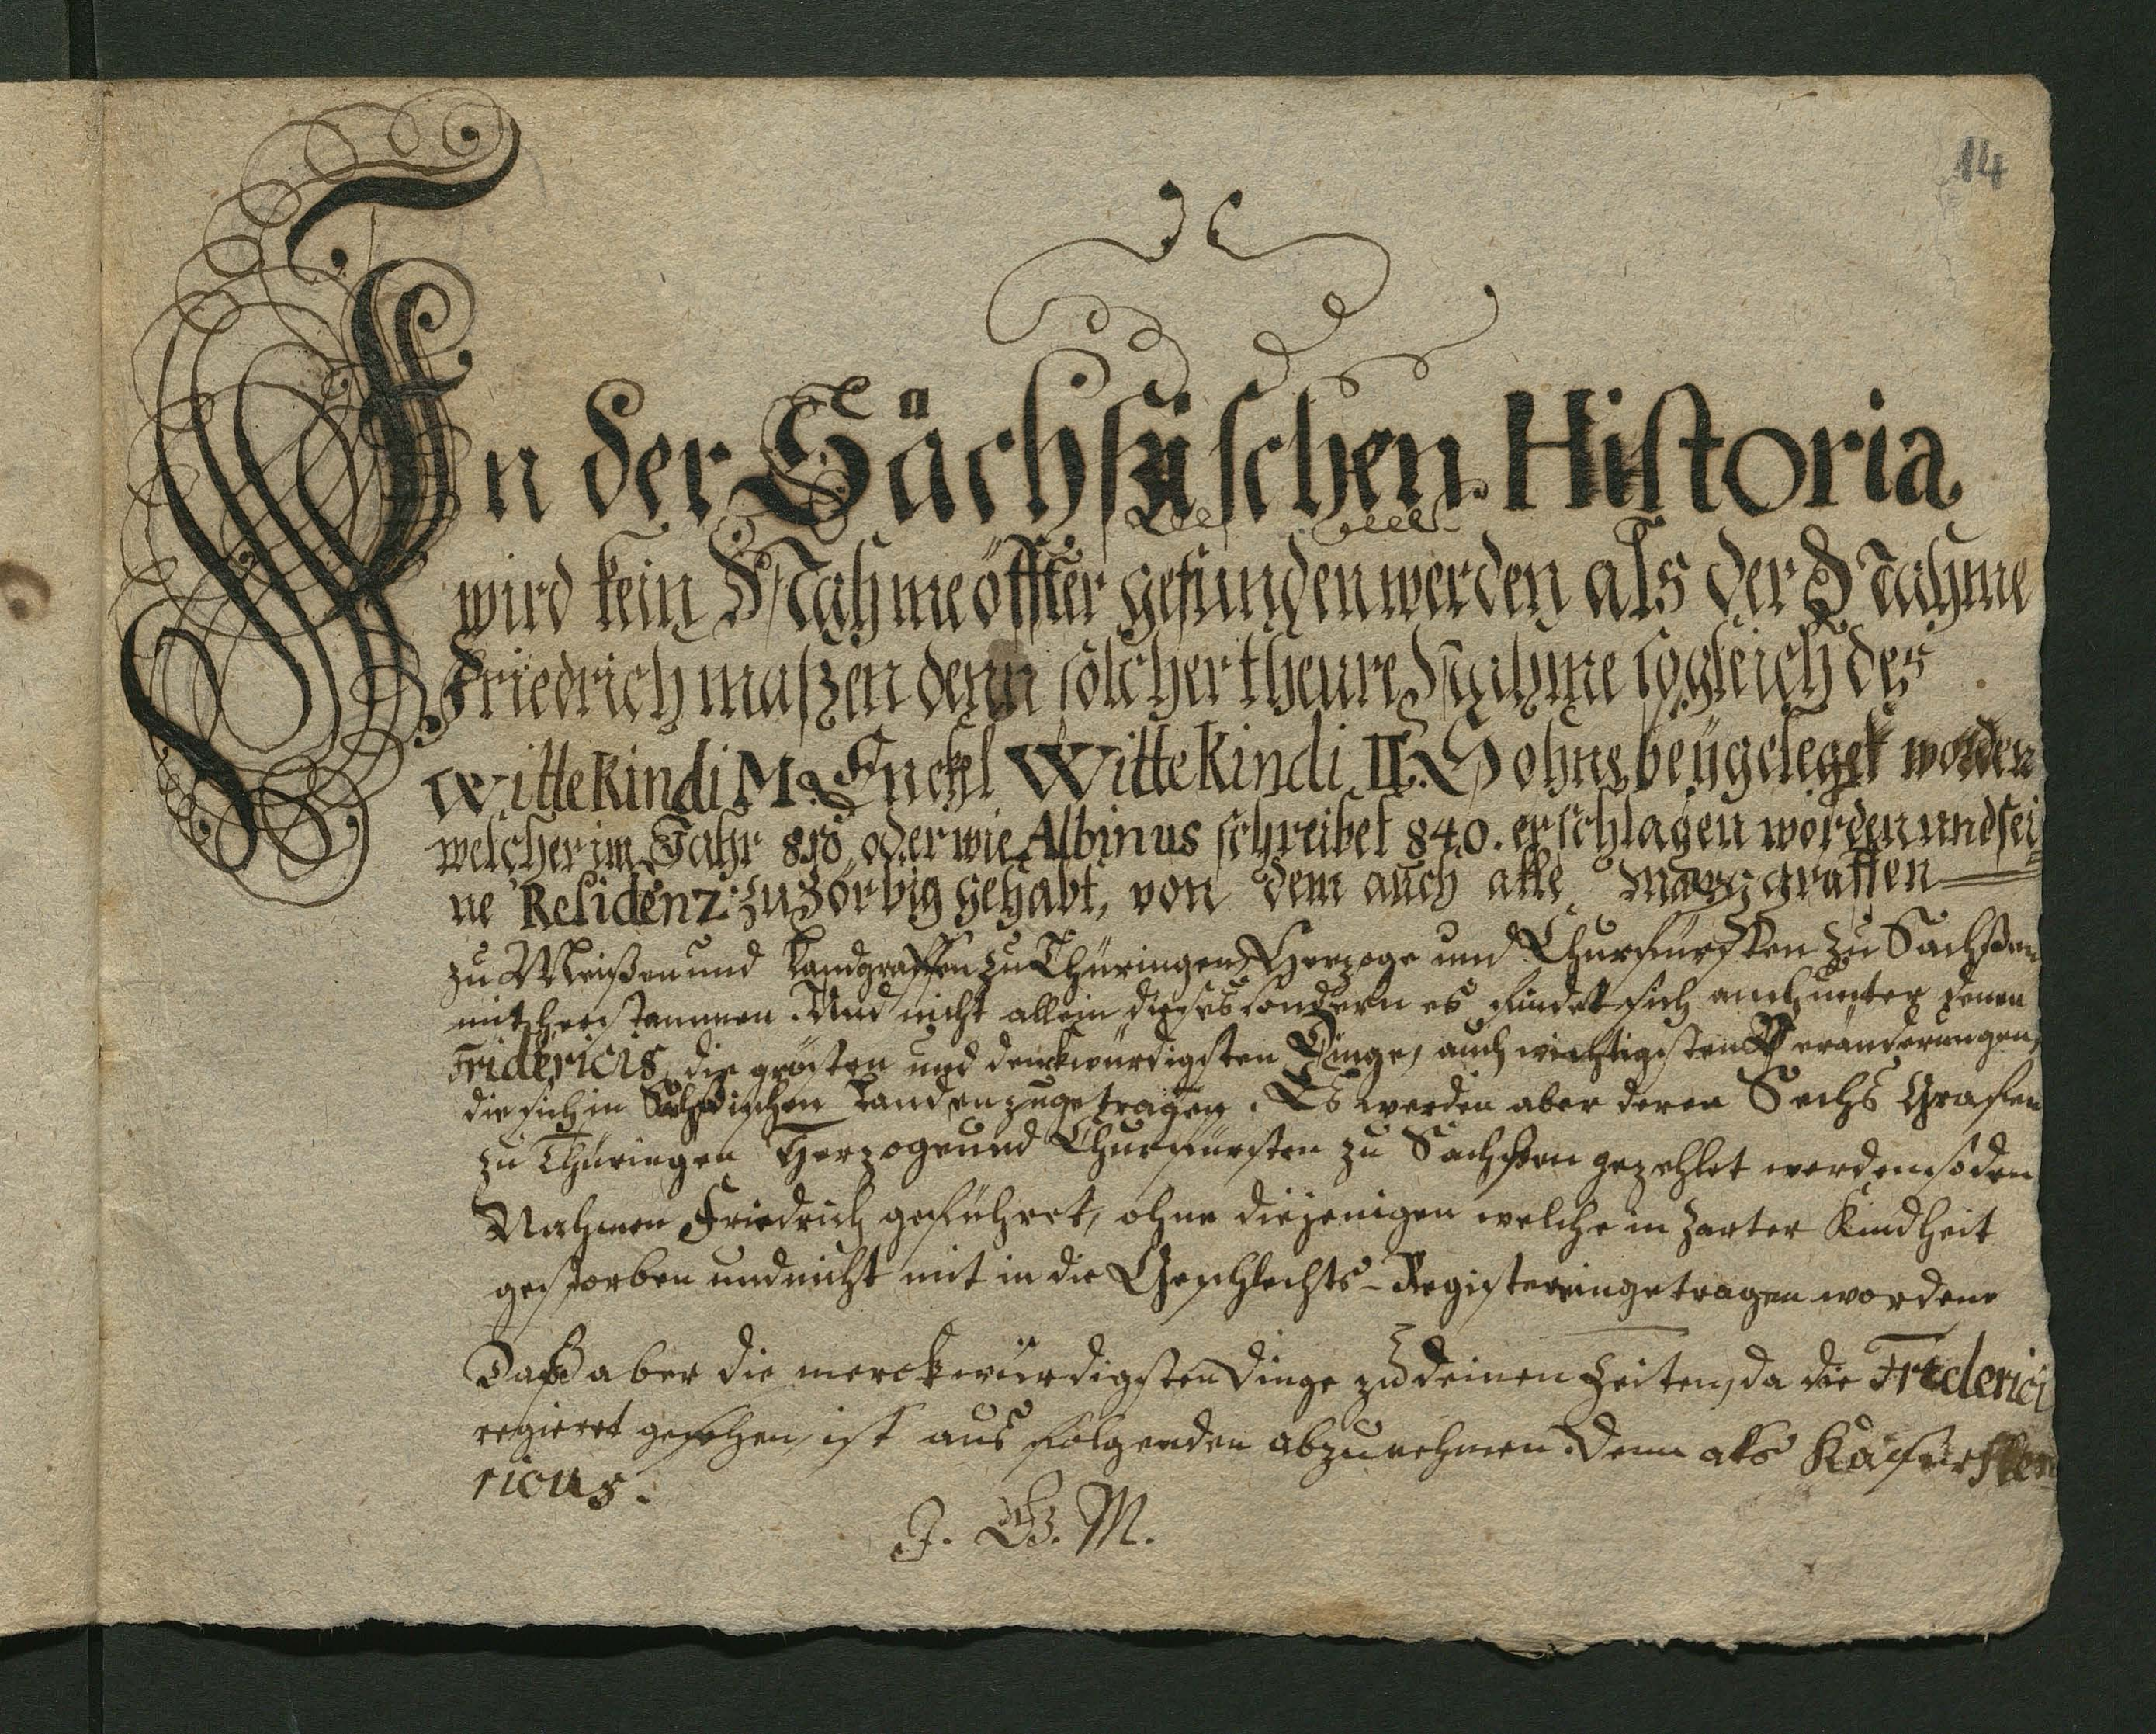 14
In der Sächsischen Historia
wird kein Nahme öffter gefunden werden als der Nahme
Friedrich maszen denn solcher theure Nahme sogleich des
Wittekindi M. Enckel Wittekindi II. Sohne beygeleget worden
welcher im Jahr oder wie Albinus schreibet 840. erschlagen worden und sei
ne Residenz zu Zörbig gehabt, von dem auch alle Marggraffen
zu Meißen und Landgraffen zu Thüringen Herzoge und Churfürsten zu Sachßen
mit herstammen. Und nicht allein dieses sondern es findet sich auch unter denen
Fridericis die grösten und denckwürdigsten Dinge, auch wichtigsten Veränderungen,
die sich in Sächsischen Landen zugetragen. Es werden aber derer Sechs Grafen
zu Thüringen Herzoge und Churfürsten zu Sachßen gezehlet werden so den
Nahmen Friedrich geführet, ohne diejenigen welche in zarter Kindheit
gestorben und nicht mit in die Geschlechts-Register eingetragen worden
Daß aber die merckwürdigsten Dinge zu deinen Zeiten, da die Frederici
regieret geschehen, ist aus folgenden abzunehmen. Denn als
ricus.
J. G. M.